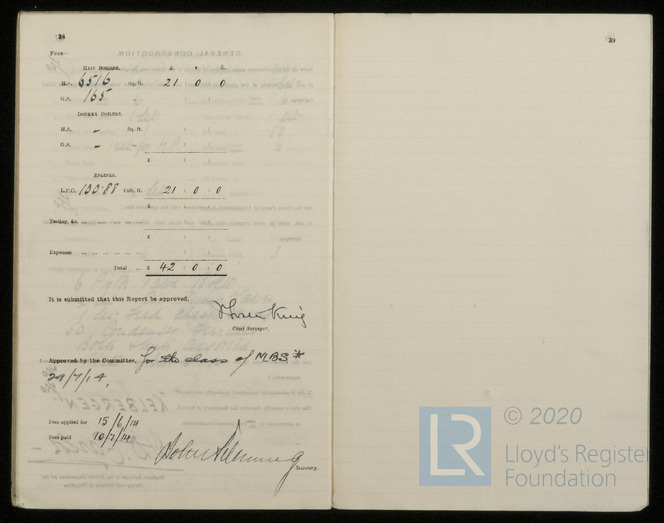 28
Fees—
MAIN BOILERS. £ s. d.
H.S. 6516 Sq. ft. 21 : 0 : 0
G.S. 165 "
DONKEY BOILERS.
H.S. - Sq. ft.
G.S. - "
£
ENGINES.
L.P.C. 100.88 Cub. ft. 21 : 0 : 0
£
Testing, &c.
£
Expenses
Total ... £ 42 : 0 : 0
It is submitted that this Report be approved,
Chief Surveyor.
Approved by the Committee, for the class of MBS*
29/7/14.
Fees applied for 15/6/14
Fees paid 10/7/14
Secretary.
29
LR
© 2020
Lloyd's Register
Foundation